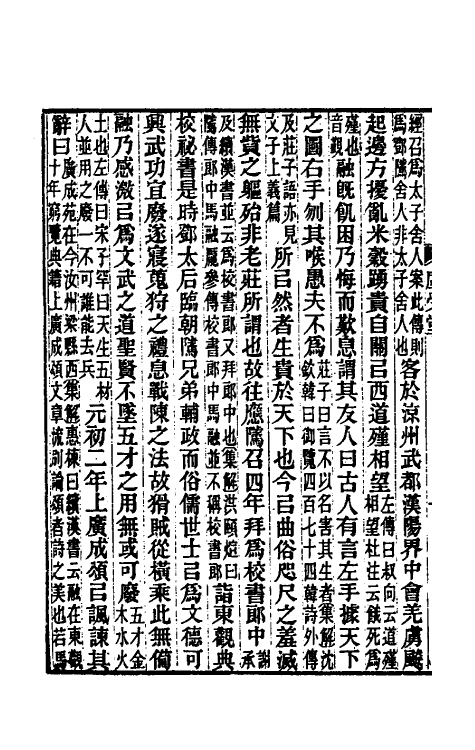 經召爲太子舍人案此傳則
爲鄧騭舍人非太子舍人也
客於涼州武都漢陽界中會羌虜飈
起邊方擾亂米穀踴貴自關㠯西道殣相望
左傳曰叔向云道殣
相望杜注云餓死爲
殣也
音覲
融旣飢困乃悔而歎息謂其友人曰古人有言左手據天下
之圖右手刎其喉愚夫不爲
莊子曰言不以名害其生者集解沈
欽韓曰御覽四百七十四韓詩外傳
及莊子語亦見
文子上義篇
所㠯然者生貴於天下也今㠯曲俗咫尺之羞滅
無貲之軀殆非老莊所謂也故往應騭召四年拜爲校書郎中
謝
承
及續漢書並云爲校書郎又拜郎中也集解洪頤煊曰
騭傳郎中馬融龐參傳校書郎中馬融並不稱校書郎
詣東觀典
校祕書是時鄧太后臨朝騭兄弟輔政而俗儒世士㠯爲文德可
興武功宜廢遂寢蒐狩之禮息戰陳之法故猾賊從橫乘此無備
融乃感激㠯爲文武之道聖賢不墜五才之用無或可廢
五才金
木水火
土也左傳曰宋子罕曰天生五材
人並用之廢一不可誰能去兵
元初二年上廣成頌㠯諷諫其
辭曰
廣成苑在今汝州梁縣西集解惠棟曰續漢書云融在東觀
十年窮覽典籍上廣成頌文章流別論頌者詩之美也若馬